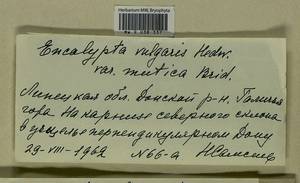 Herbarium MW, Bryophyta
Encalypta vulgaris Hedw.
var. mutica Brid.
Липецкая обл. Донской р-н. Галичья
гора На карнизе северного склона
в ущелье перпендикулярном Дону
29-VIII-1962 N66-а